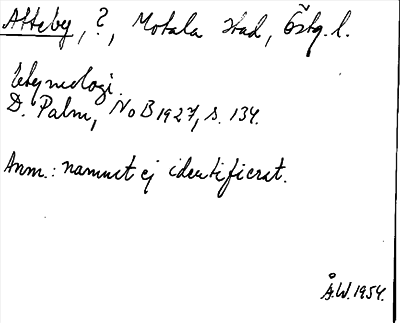 Atteby, ?, Motala stad, Östg. l.
Etymologi.
D. Palm, NoB 1927, s. 134.
Anm.: namnet ej identifierat.
Å.W. 1954.